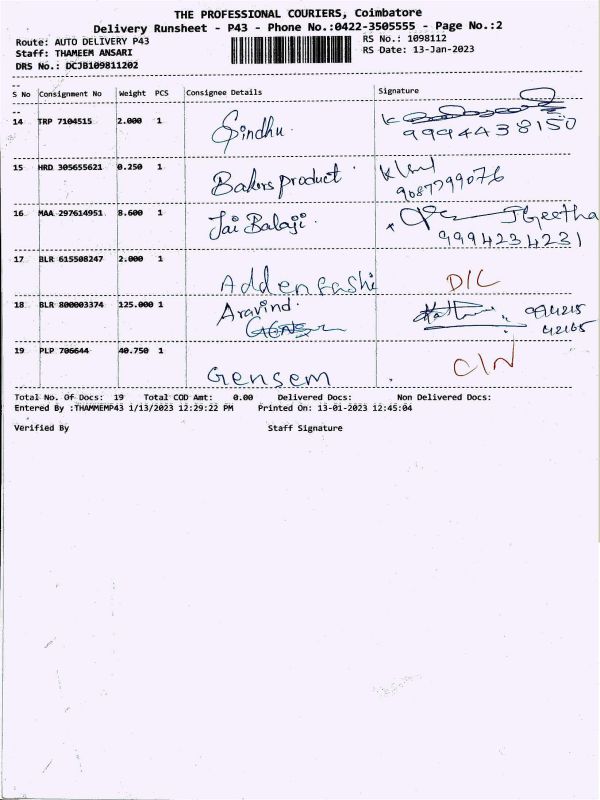 THE PROFESSIONAL COURIERS, Coimbatore
Delivery Runsheet - P43 - Phone No.:0422-3505555 - Page No.:2
Route: AUTO DELIVERY P43 RS No.: 1098112
Staff: THAMEEM ANSARI RS Date: 13-Jan-2023
DRS No.: DCJB109811202
S No Consignment No Weight PCS Consignee Details Signature
14 TRP 7104515 2.000 1 Sindhu 9994438150
15 HRD 305655621 0.250 1 Bakers product 9087799076
16 MAA 297614951 8.600 1 Jai Balaji JGeetha
9994234231
17 BLR 615508247 2.000 1 D/C
18 BLR 800003374 125.000 1 Aravind
42165
19 PLP 706644 40.750 1 Gensem C/N
Total No. Of Docs: 19 Total COD Amt: 0.00 Delivered Docs: Non Delivered Docs:
Entered By :THAMMEMP43 1/13/2023 12:29:22 PM Printed On: 13-01-2023 12:45:04
Verified By Staff Signature